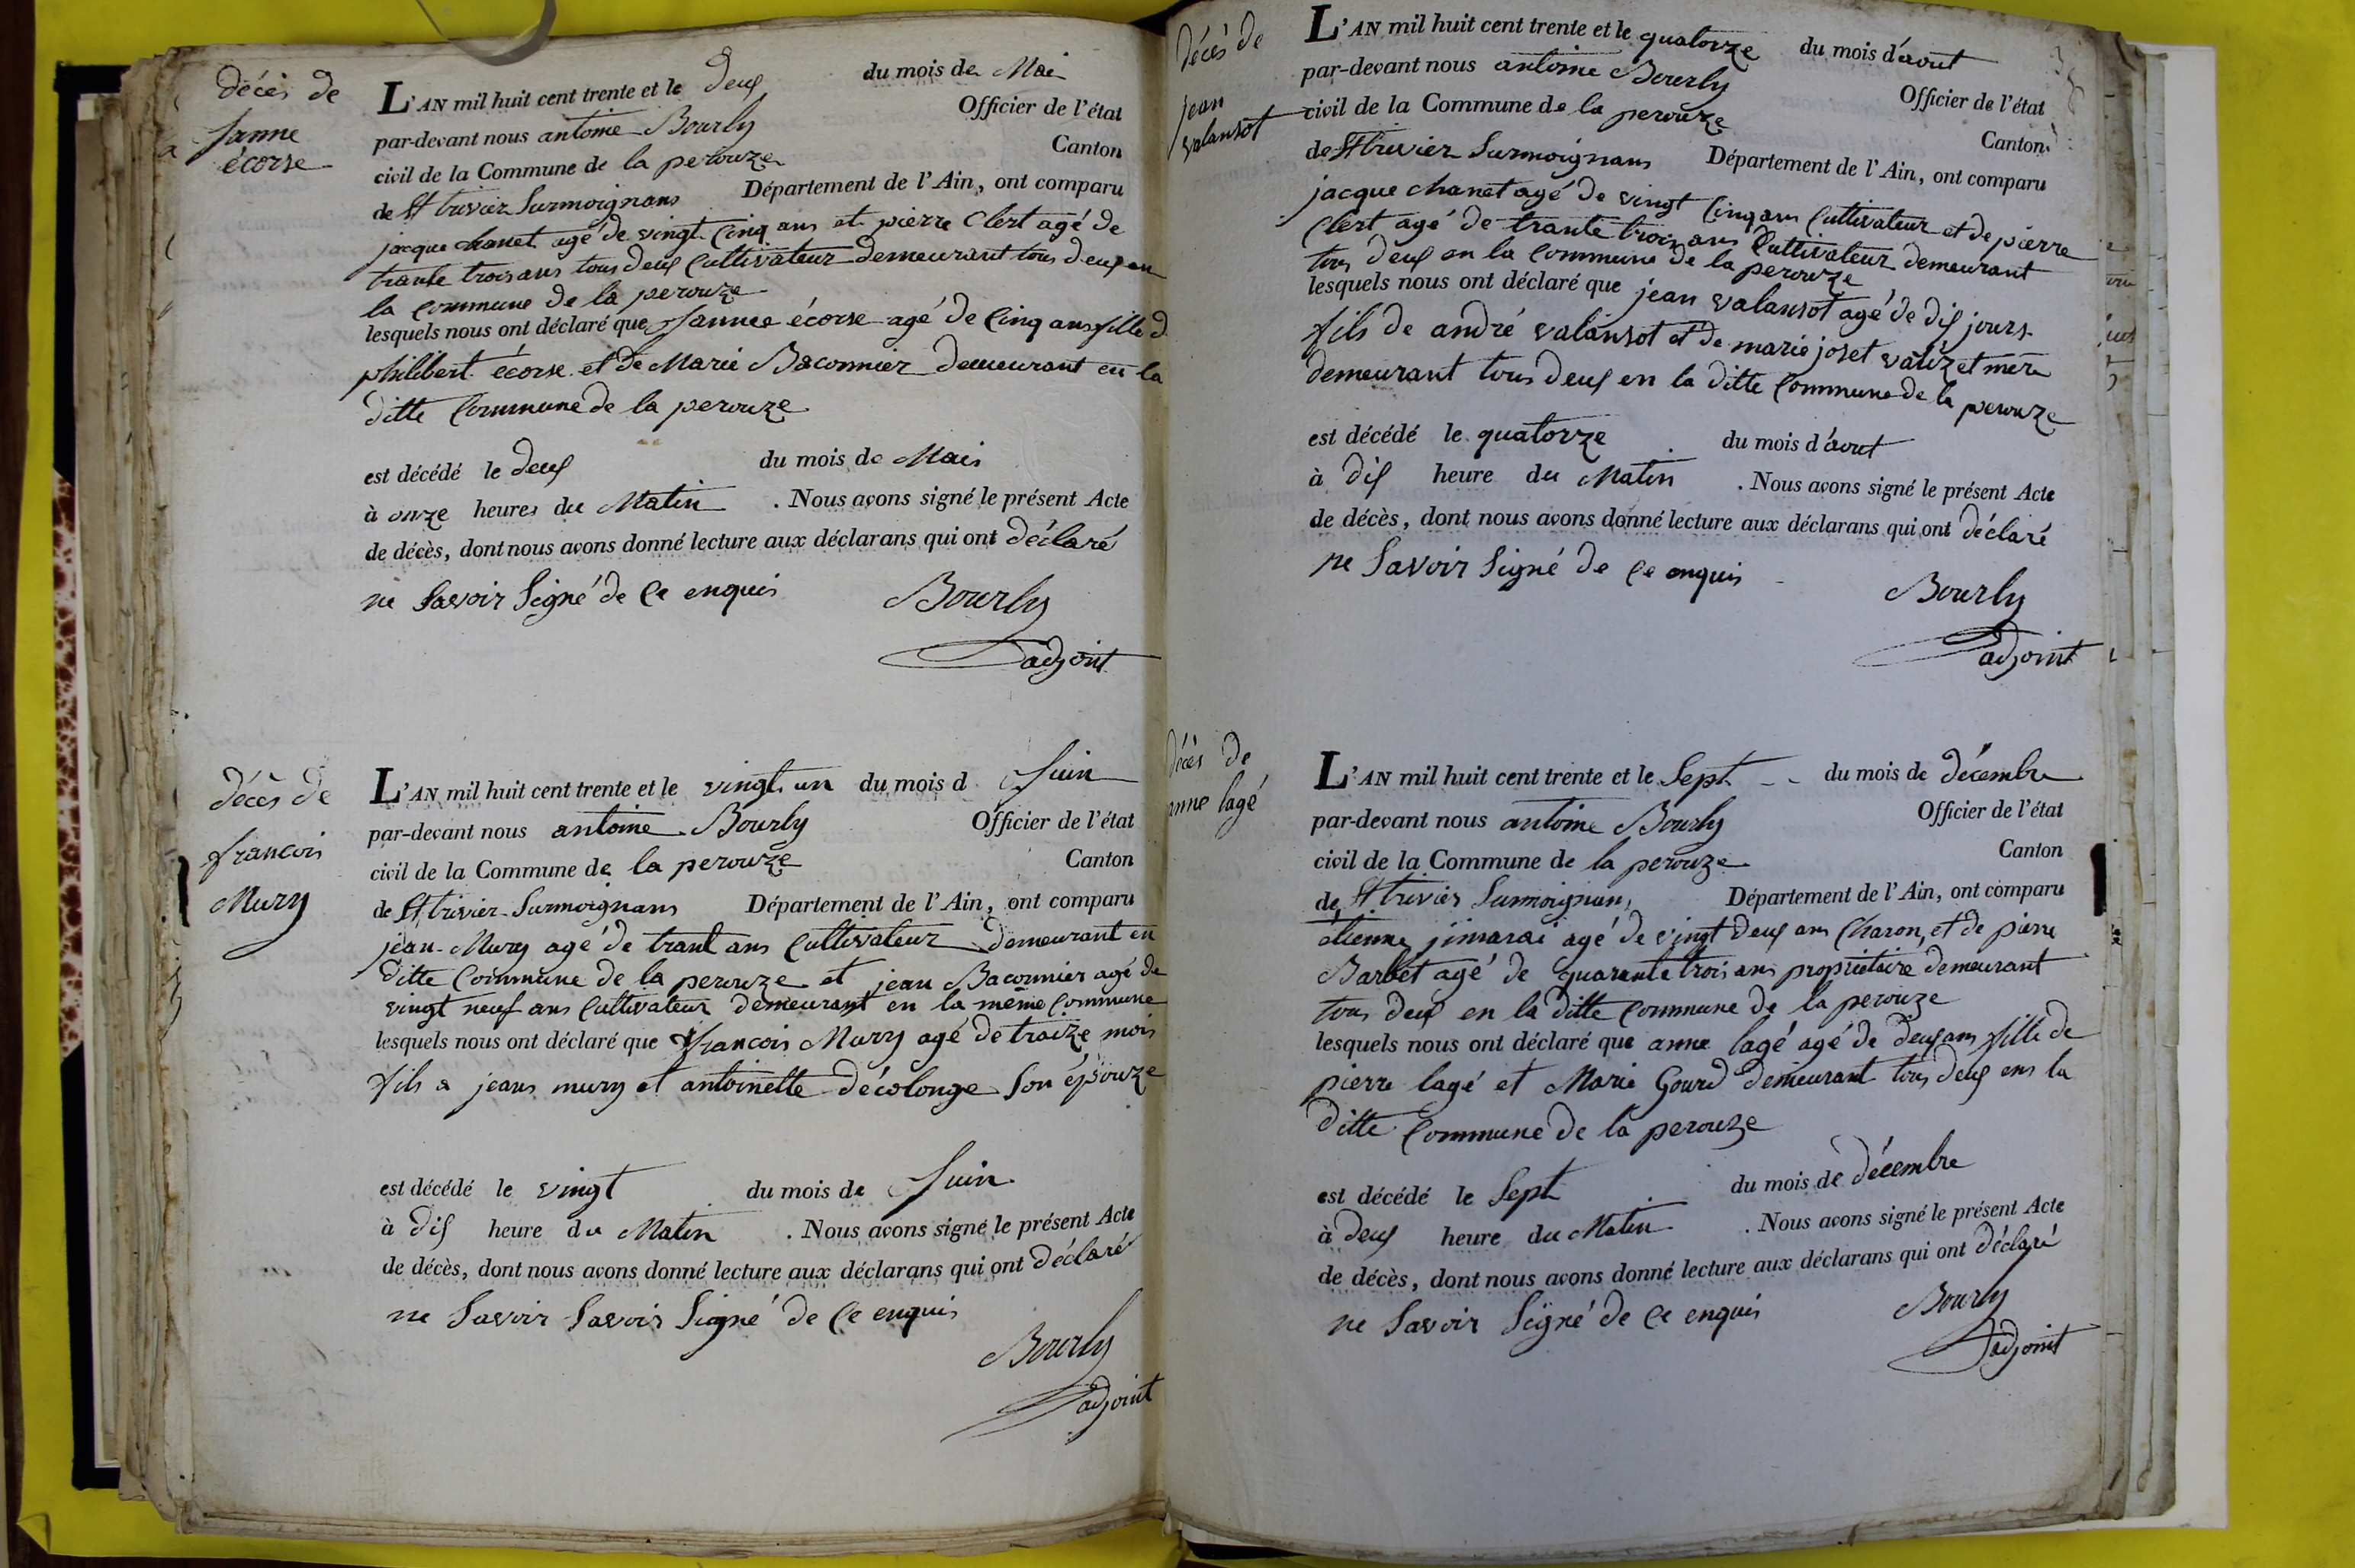 décès de
Janne
écorse
L'AN mil huit cent trente et le deux du mois de Mai
par-devant nous antoine Bourly Officier de l'état
civil de la Commune de la perouze Canton
de St trivier Surmoignans Département de l'Ain, ont comparu
jacque chanet agé de vingt Cinq ans et pierre Clert agé de
trante trois ans tous deux Cultivateur demeurant tous deux en
la Commune de la perouze
lesquels nous ont déclaré que Jannee écorse agé de Cinq ans fille d
philibert écorse et de Marie Baconnier demeurant en la
ditte Commune de la perouze
est décédé le deux du mois de Mais
à onze heures du Matin . Nous avons signé le présent Acte
de décès, dont nous avons donné lecture aux déclarans qui ont déclaré
ne Savoir Signé de Ce enquis Bourly
adjoint
décès de
francois
Mury
L'AN mil huit cent trente et le vingt un du mois d Juin
par-devant nous antoine Bourly Officier de l'état
civil de la Commune de la perouze Canton
de St trivier Surmoignans Département de l'Ain, ont comparu
jean Mury agé de trant ans Cultivateur demeurant en
ditte Commune de la perouze et jean Baconnier agé de
vingt neuf ans Cultivateur demeurant en la même Commune
lesquels nous ont déclaré que francois Mury agé de traize mois
fils a jeans mury et antoinette décolonge Son épouze
est décédé le vingt du mois de Juin
à dix heure du Matin . Nous avons signé le présent Acte
de décès, dont nous avons donné lecture aux déclarans qui ont déclaré
ne Savoir Savoir Signé de Ce enquis
Bourly
adjoint
décès de
jean
valansot
L'AN mil huit cent trente et le quatorze du mois d'aout
par-devant nous antoine Bourly Officier de l'état
civil de la Commune de la perouze Canton
de St trivier Surmoignans Département de l'Ain, ont comparu
jacque chanet agé de vingt Cinq ans Cultivateur et de pierre
Clert agé de trante trois ans Cultivateur demeurant
tous deux en la Commune de la perouze
lesquels nous ont déclaré que jean valansot agé de dix jours
fils de andré valansot et de marie joset mère
demeurant tous deux en la ditte Commune de la perouze
est décédé le quatorze du mois d'aout
à dix heure du Matin . Nous avons signé le présent Acte
de décès, dont nous avons donné lecture aux déclarans qui ont déclaré
ne Savoir Signé de Ce enquis
Bourly
adjoint
décès de
anne lagé
L'AN mil huit cent trente et le Sept du mois de décembre
par-devant nous antoine Bourly Officier de l'état
civil de la Commune de la perouze Canton
de St trivier Surmoignans Département de l'Ain, ont comparu
étienne jimarai agé de vingt deux ans Charon, et de pierre
Barbet agé de quarante trois ans propriétaire demeurant
tous deux en la ditte Commune de la perouze
lesquels nous ont déclaré que anne lagé agé de deux ans fille de
pierre lagé et Marie Gourd demeurant tous deux ens la
ditte Commune de la perouze
est décédé le Sept du mois de décembre
à deux heure du Matin . Nous avons signé le présent Acte
de décès, dont nous avons donné lecture aux déclarans qui ont déclaré
ne Savoir Signé de Ce enquis Bourly
adjoint